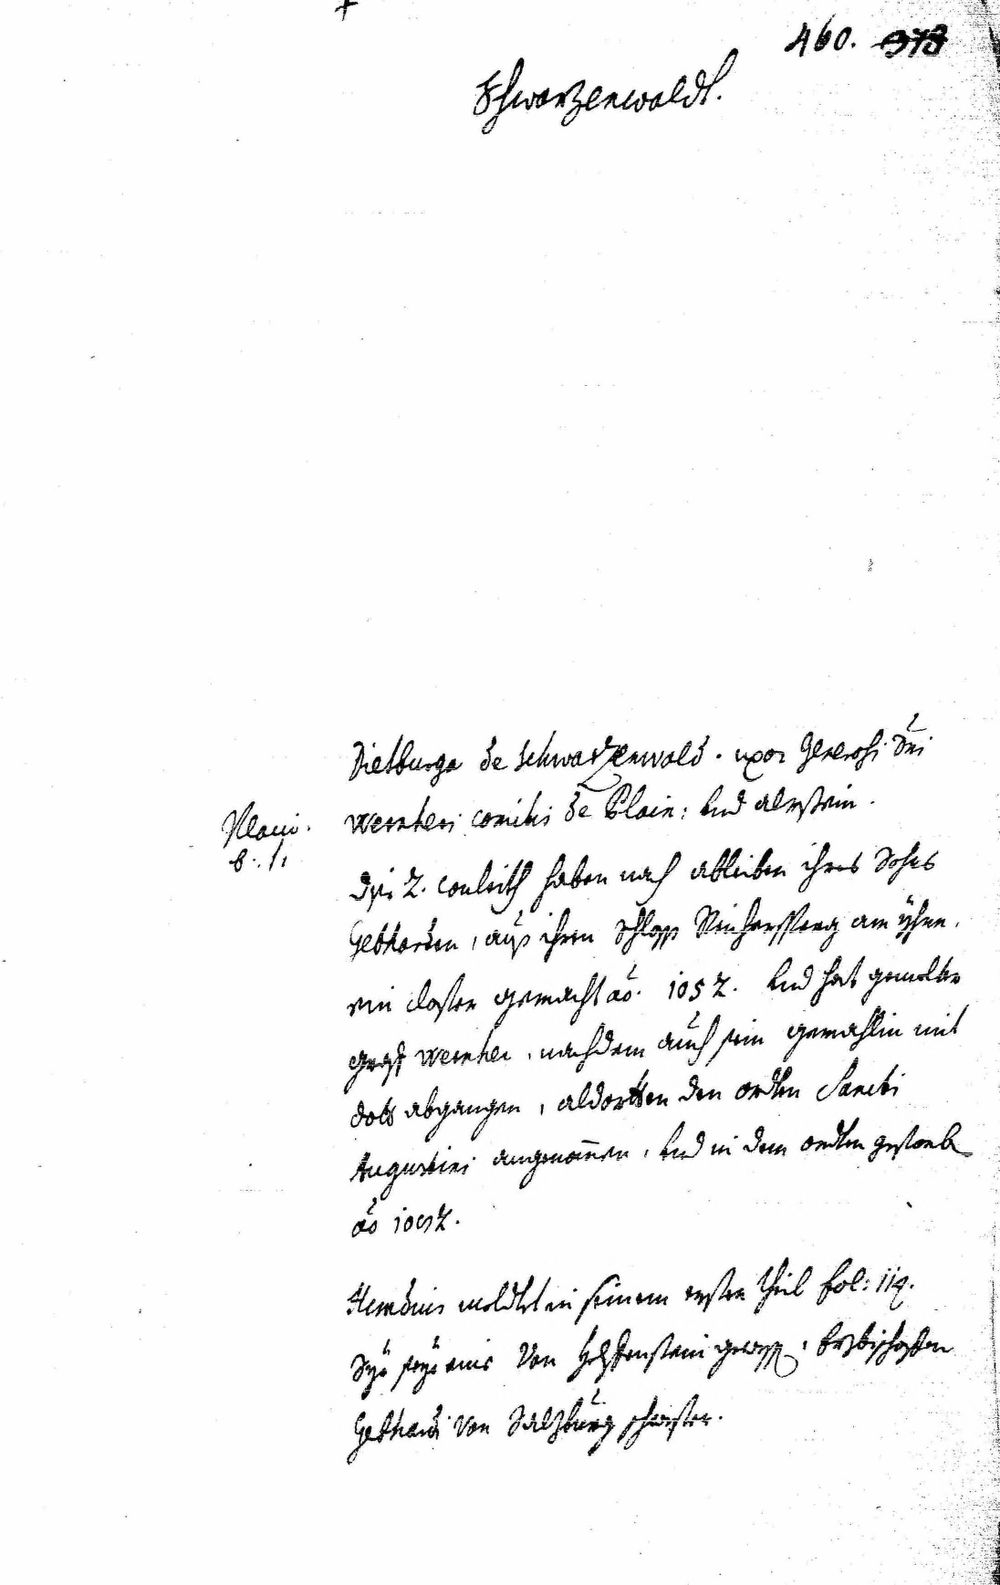 460. 373
Schwarzenwaldt.
Dietburga de Schwarzenwald. uxor Generosi Dni
Wernheri comitis de Plain: und
Plain.
b. 1.
Dise 2. Conleith haben nach ableiben ihres Sohns
Gebharden, auß ihrem Schloss Reichersperg am Yhnn,
ein closter gemacht ao. 1052. Und hat gemelter
graff Wernher, nachdem auch sein gemahlin mit
dott abgangen, aldortten den ordten Sancti
Augustini angenomen, und in dem ordten gestorb
ao
Hundius meldtet in seinem ersten theil fol: 119.
Sye seye eine von Helffenstein gewest, Erzbischoffen
Gebhardi von Salzburg schwester.